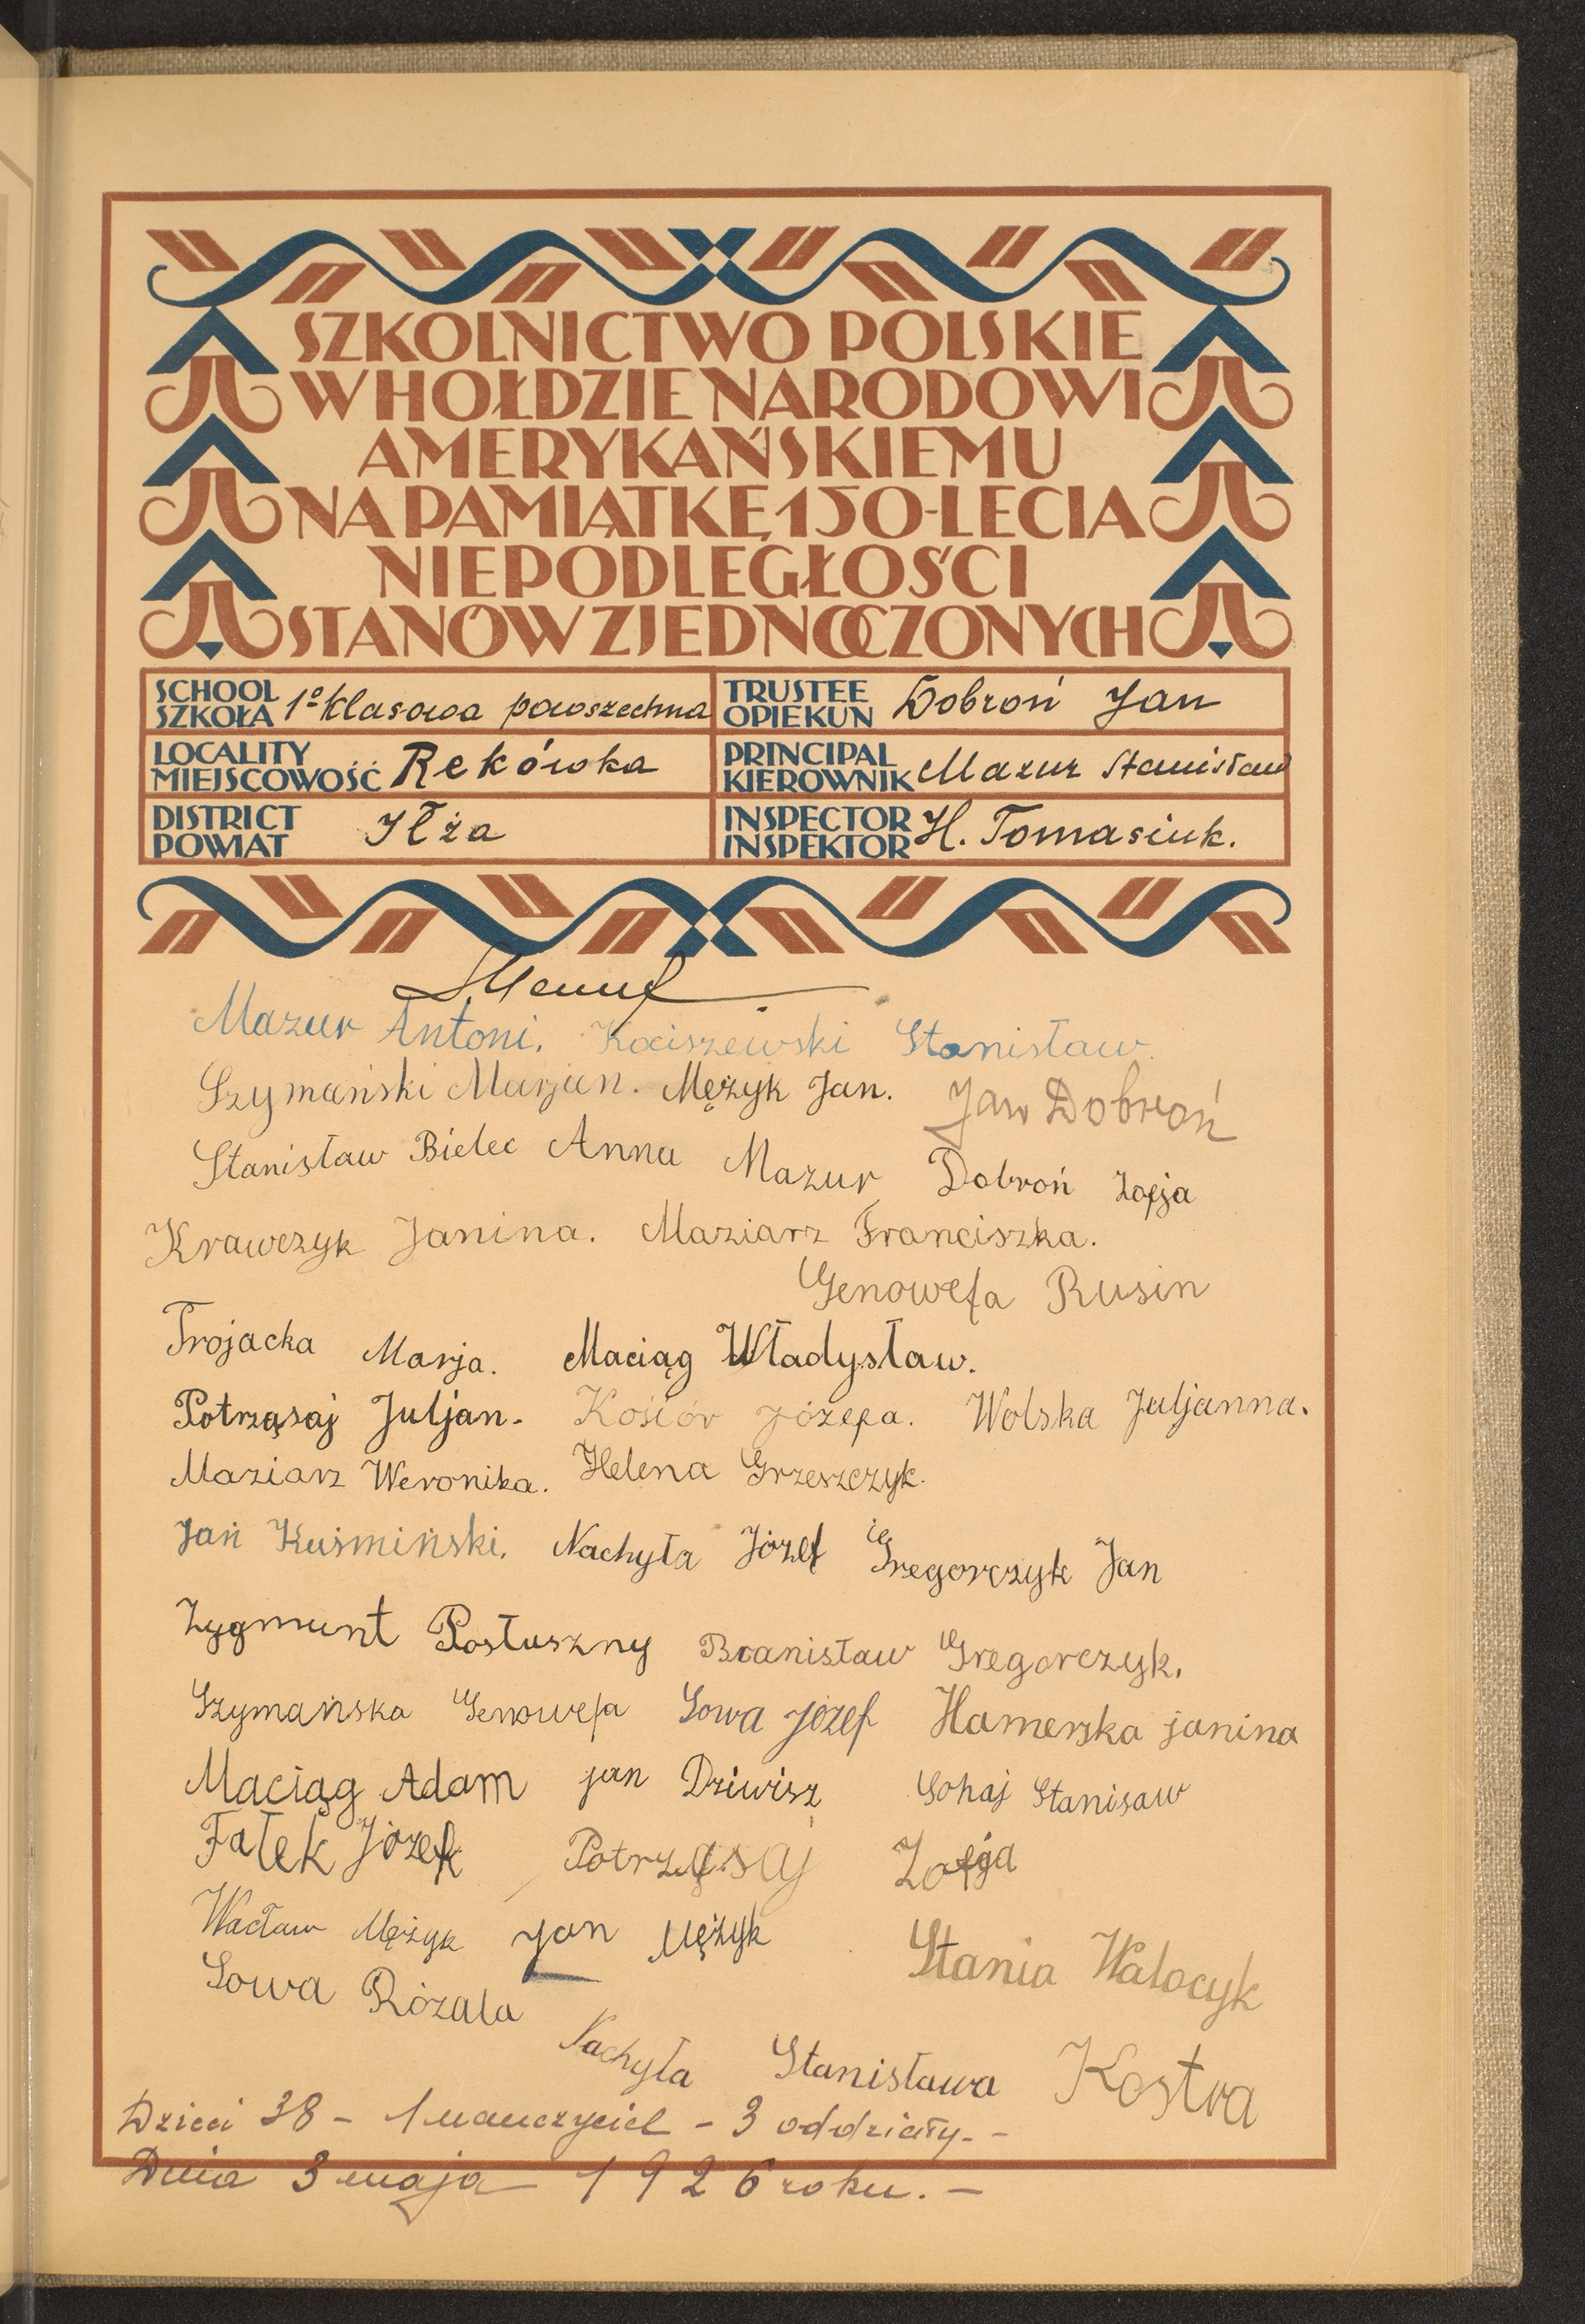 SZKOLNICTWO POLSKIE
W HOŁDZIE NARODOWI
AMERYKAŃSKIEMU
NA PAMIĄTKĘ 150-LECIA
NIEPODLEGŁOŚCI
STANÓW ZJEDNOCZONYCH
SCHOOL
SZKOŁA 1º klasowa powszechna
TRUSTEE
OPIEKUN Dobroń Jan
LOCALITY
MIEJSCOWOŚĆ Rekówka
PRINCIPAL
KIEROWNIK Mazur Stanisław
DISTRICT
POWIAT Iłża
INSPECTOR
INSPEKTOR H. Tomasiuk.
Mazur Antoni. Kociszewski Stanisław.
Szymański Marjan. Mężyk Jan. Jan Dobroń
Stanisław Bielec Anna Mazur Dobroń Zofja
Krawczyk Janina. Maziarz Franciszka.
Genowefa Rusin
Trojacka Marja. Maciąg Władysław.
Potrząsaj Juljan. Kośiór Józefa. Wolska Juljanna.
Maziarz Weronika. Helena Grzeszczyk.
Jań Kuśmiński. Nachyła Józef Gregorczyk Jan
Zygmunt Posłuszny Bronisław Gregorczyk.
Szymańska Genowefa Sowa Józef Hamerska janina
Maciąg Adam jan Dziwisz Sohaj Stanisaw
Fałek Józef Potrząsaj Zofja
Wacław Mężyk Jan Mężyk Stania Walocyk
Sowa Rózala
Nachyła Stanisława Kostra
Dzieci 38 - 1 nauczyciel - 3 oddziały. -
Dnia 3 maja 1926 roku. -